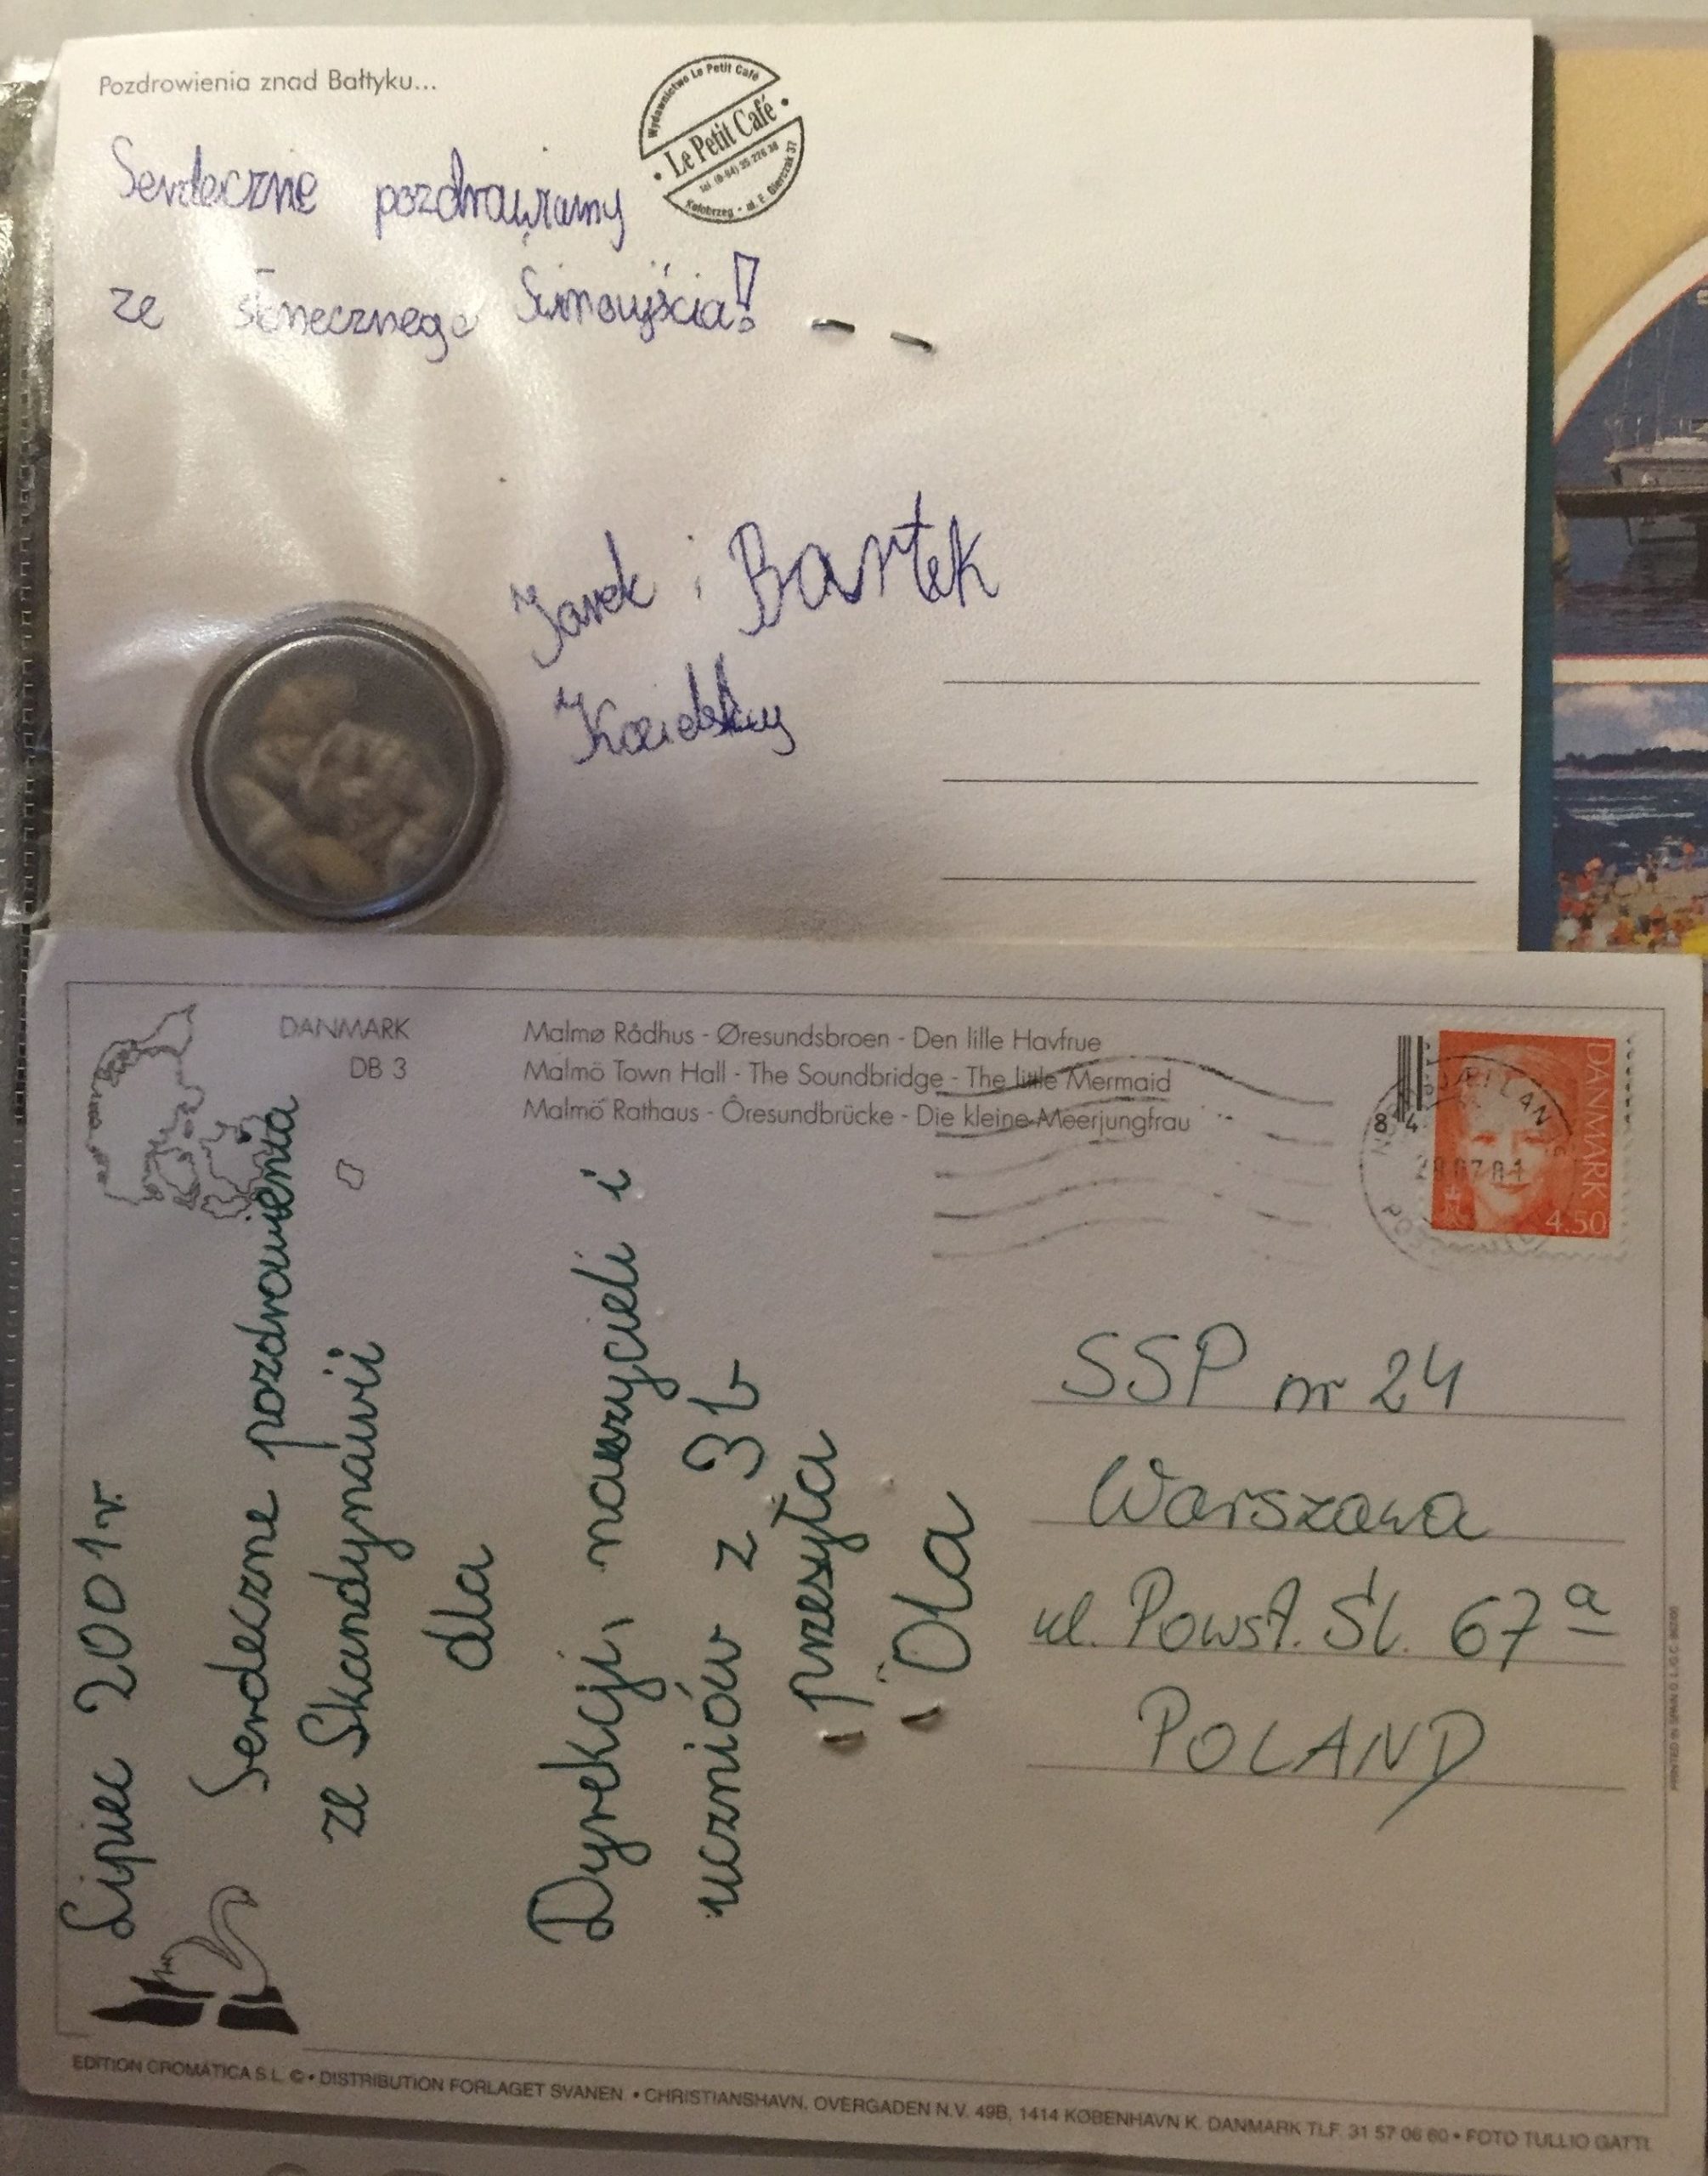 Pozdrowienia znad Bałtyku...
Wydawnictwo Le Petit Café
• Le Petit Café •
Tel. (0-94) 35 226 38
Kołobrzeg - ul. E. Gierczak 37
Serdecznie pozdrawiamy
ze słonecznego Świnoujścia!
Jarek i Bartek
DANMARK
DB 3
Malmø Rådhus - Øresundsbroen - Den lille Havfrue
Malmö Town Hall - The Soundbridge - The little Mermaid
Malmö Rathaus - Öresundbrücke - Die kleine Meerjungfrau
DANMARK
4.50
84
Lipiec 2001 r.
Serdeczne pozdrowienia
ze Skandynawii
dla
Dyrekcji, nauczycieli i
uczniów z 3b
przesyła
Ola
SSP nr 24
Warszawa
ul. Powst. Śl. 67a
POLAND
EDITION CROMATICA S.L. © • DISTRIBUTION FORLAGET SVANEN • CHRISTIANSHAVN. OVERGADEN N.V. 49B, 1414 KØBENHAVN K. DANMARK TLF. 31 57 06 60 • FOTO TULLIO GATTI